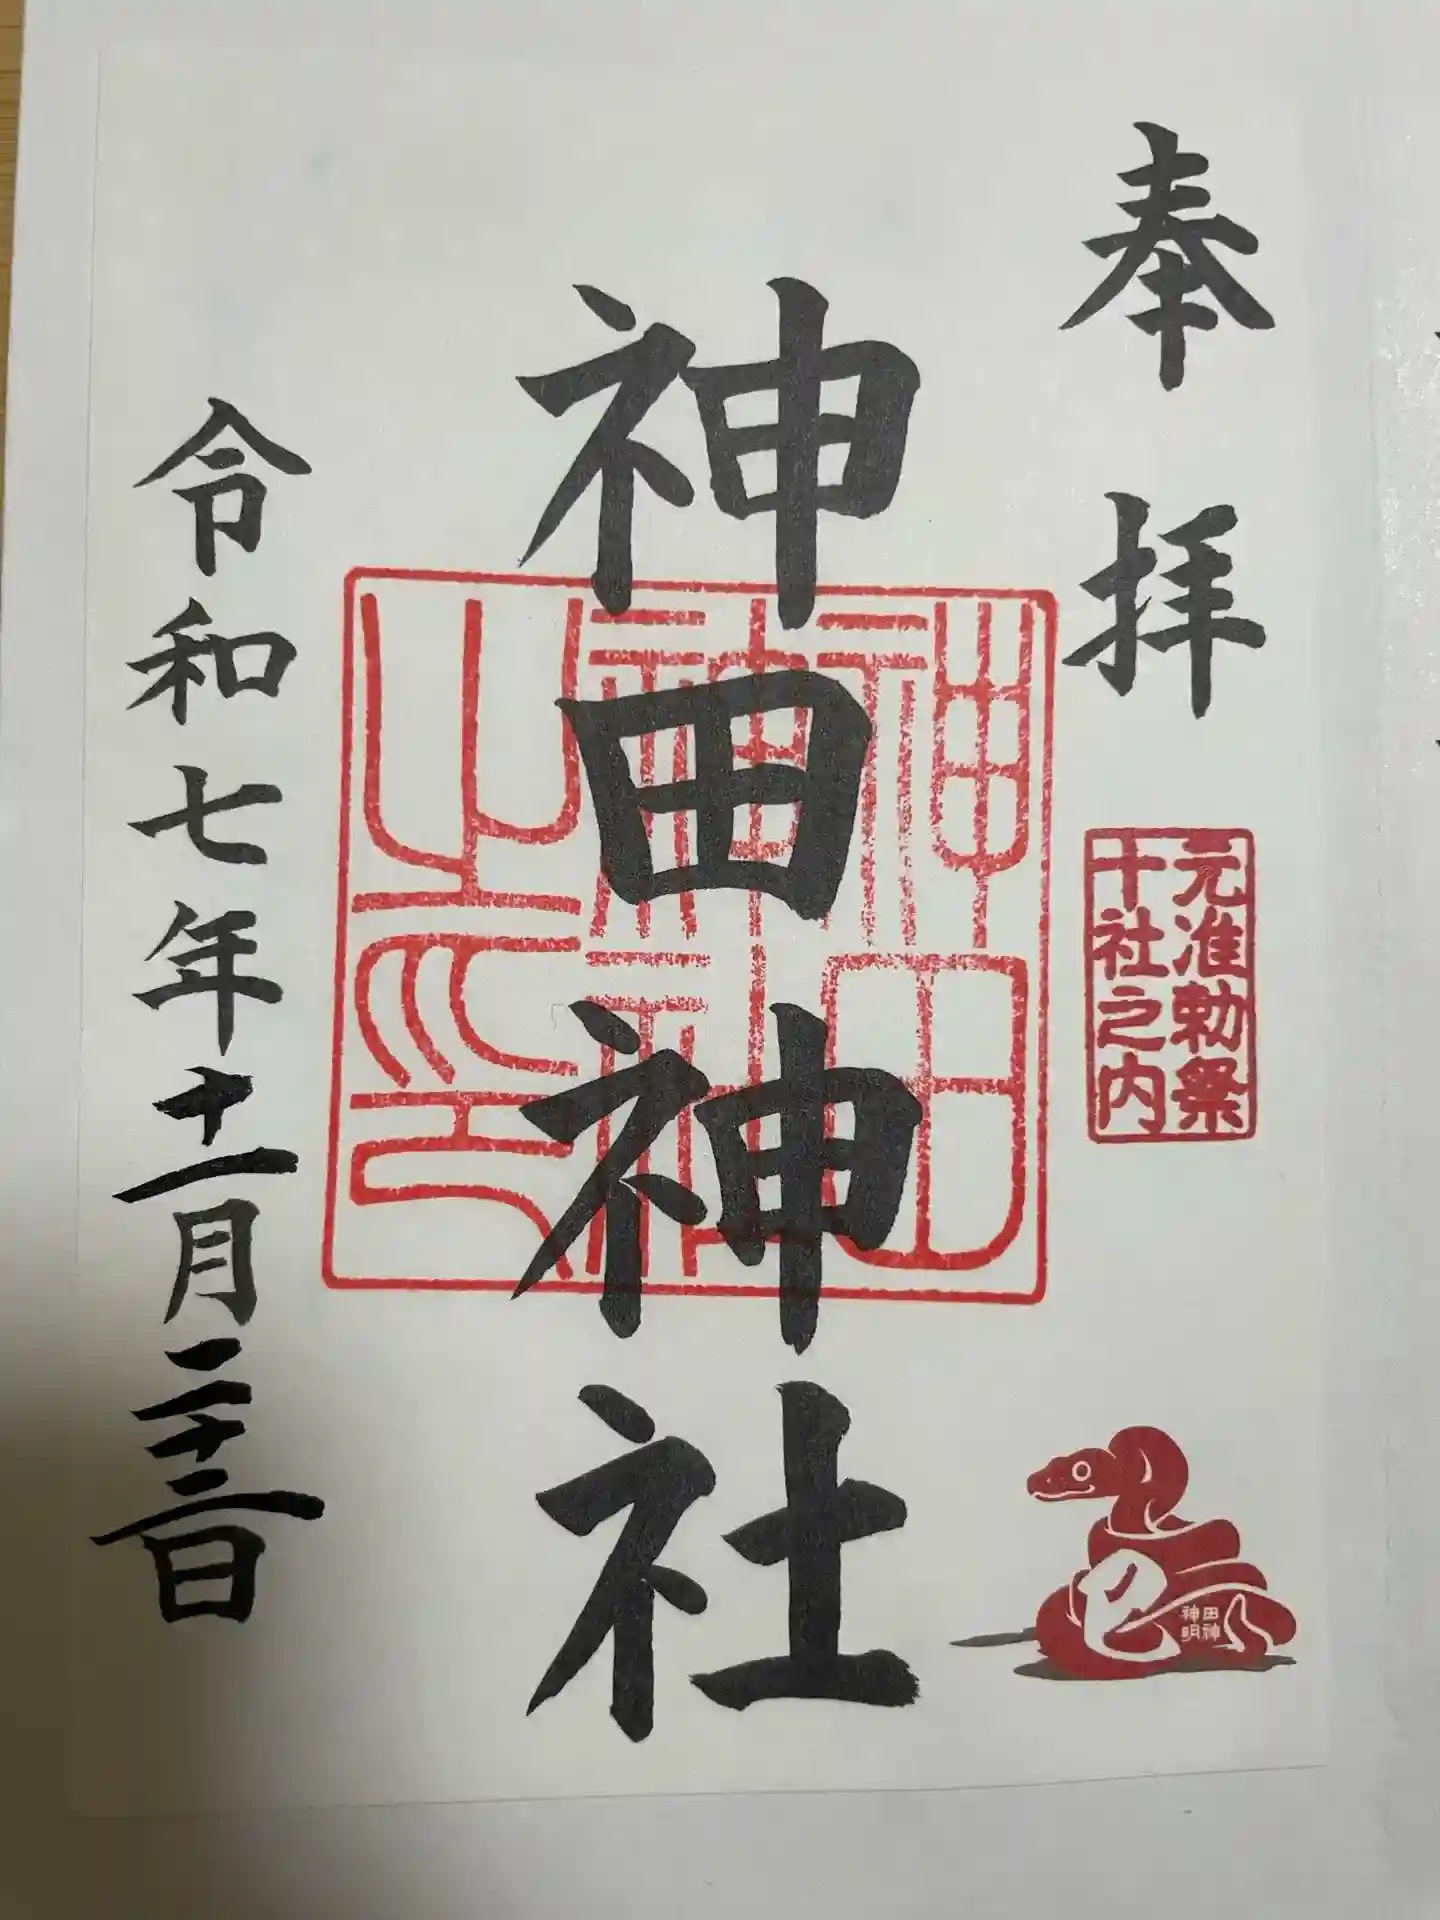 奉拝
元准勅祭
十社之内
巳
神田
明神
神田神社
神田
神社
之印
令和七年十一月二十二日